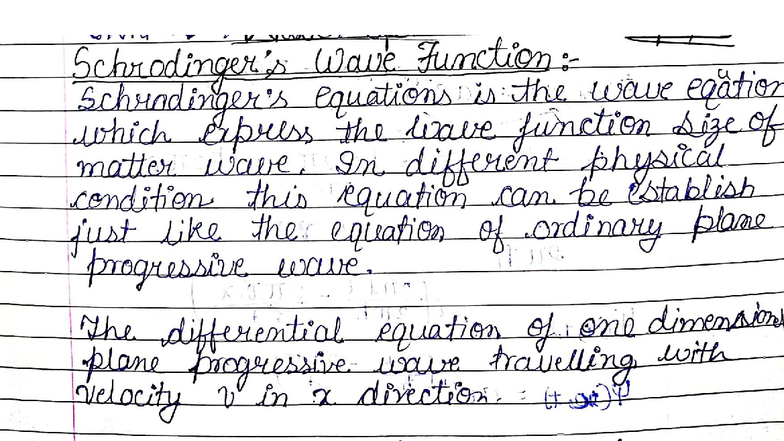 Schrodinger's Wave Function :-
Schrodinger's equations is the wave eqation
which express the wave function size of
matter wave. In different physical
condition this equation can be establish
just like the equation of ordinary plane
progressive wave.
The differential equation of one dimension
plane progressive wave travelling with
velocity v in x direction.